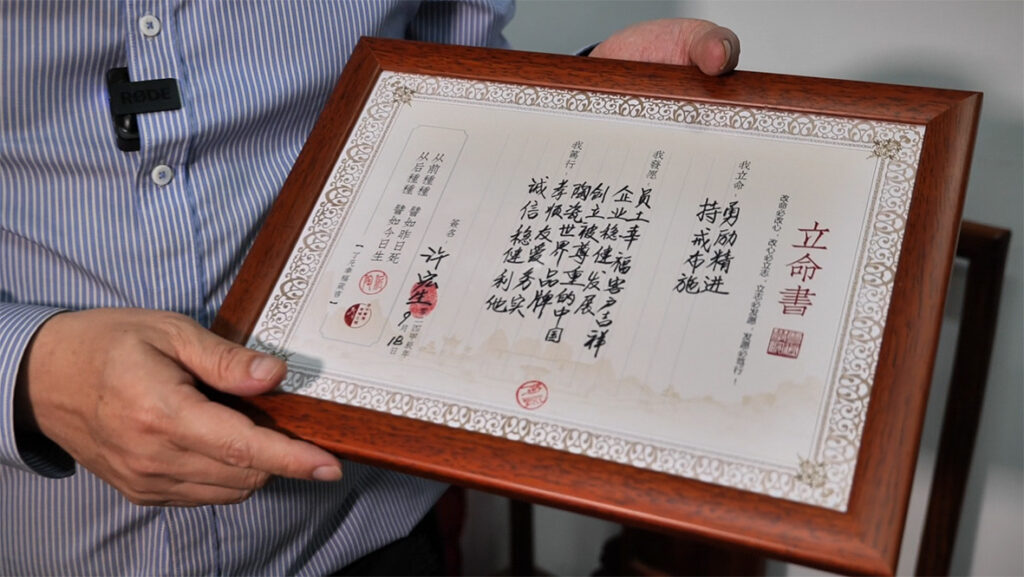 立命書
改命必改心，改心必立志，立志必發愿，發愿必篤行！
我立命：
勇励精进
持戒布施
我發愿
员工幸福客户吉祥
企业稳健发展
创立被尊重的中国
陶瓷世界品牌
我篤行：
孝顺友爱务实
诚信稳健利他
簽名
许宏生
9月18日
从前種種 譬如昨日死
从后種種 譬如今日生
RØDE